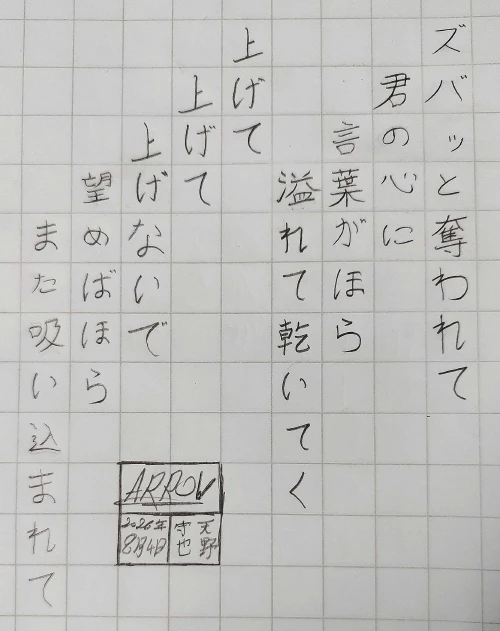 ズバッと奪われて
君の心に
言葉がほら
溢れて乾いてく
上げて
上げて
上げないで
望めばほら
また吸い込まれて
ARROW
2026年
8月4日
天野
守也